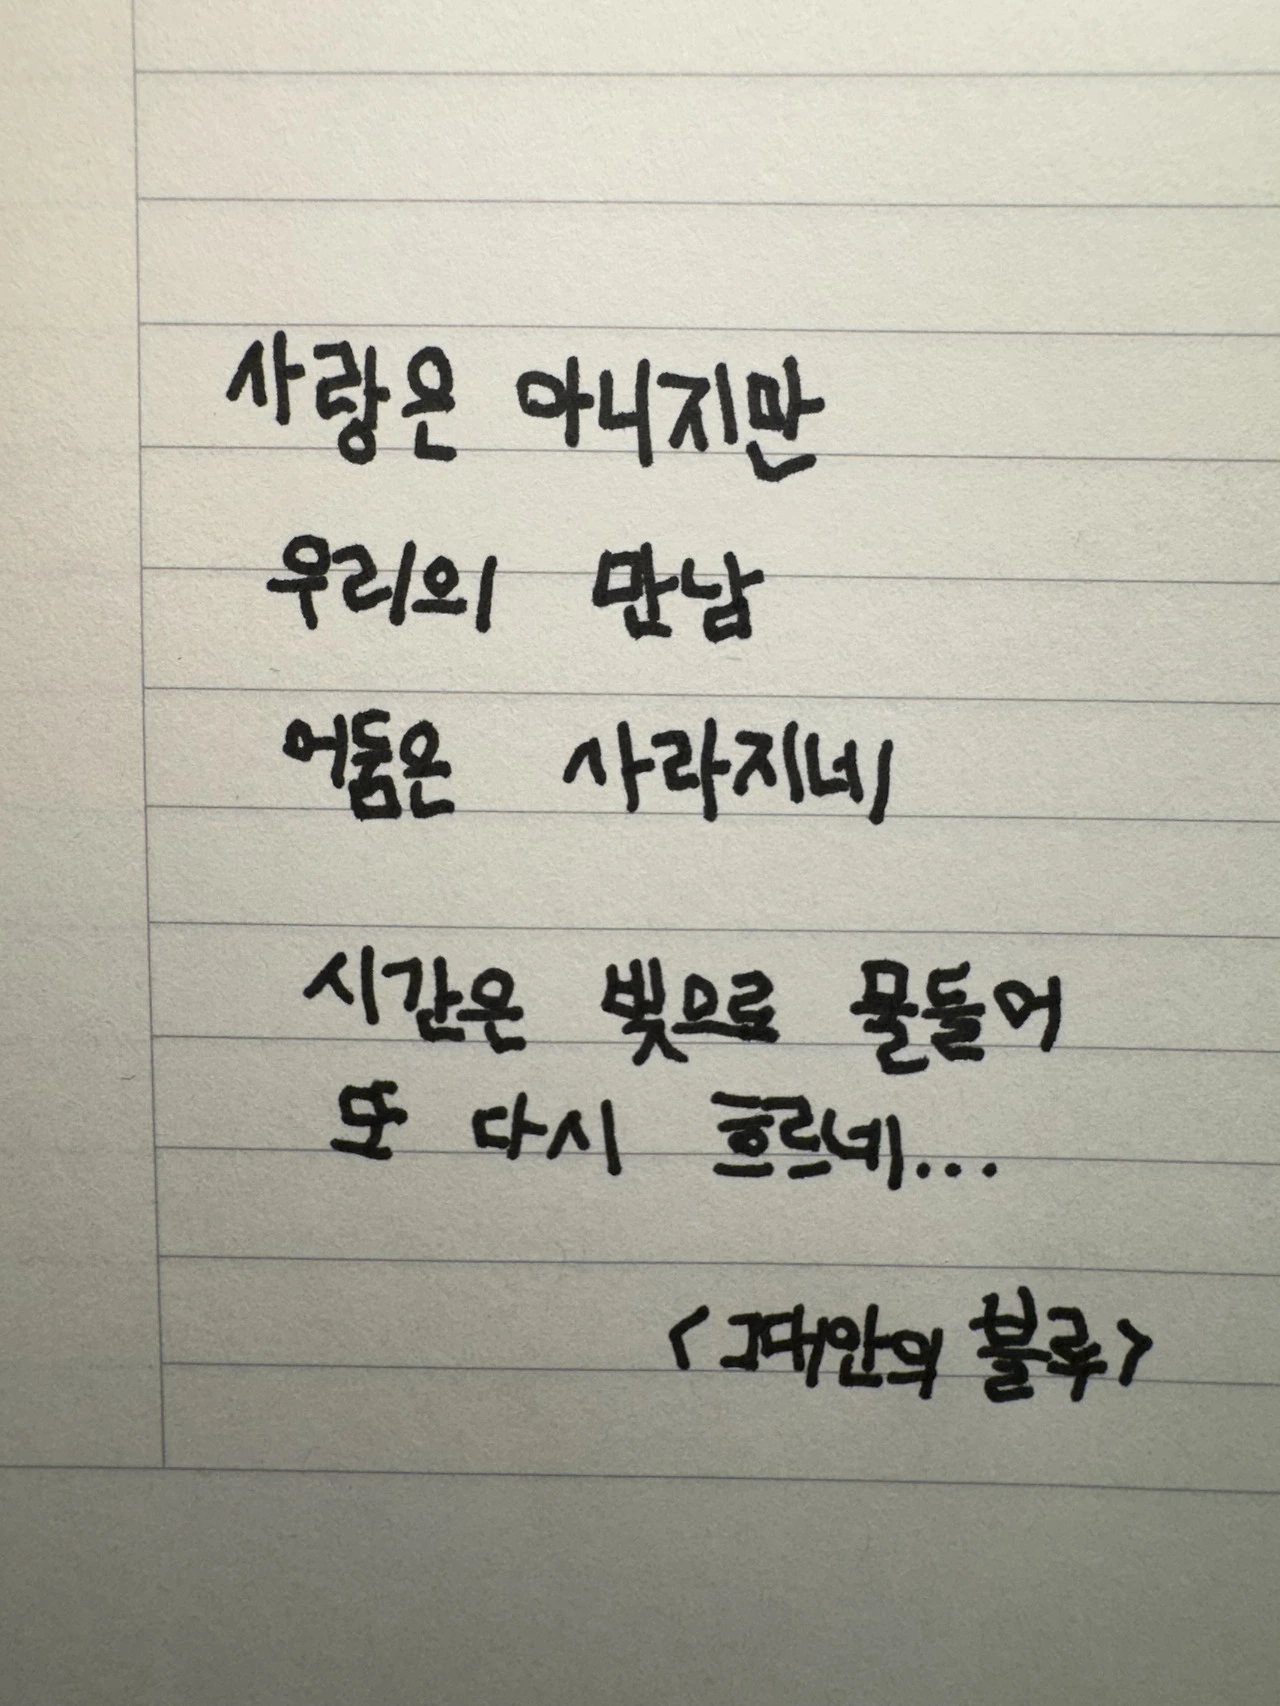 사랑은 아니지만
우리의 만남
어둠은 사라지네
시간은 빛으로 물들어
또 다시 흐르네...
<그대안의 블루>